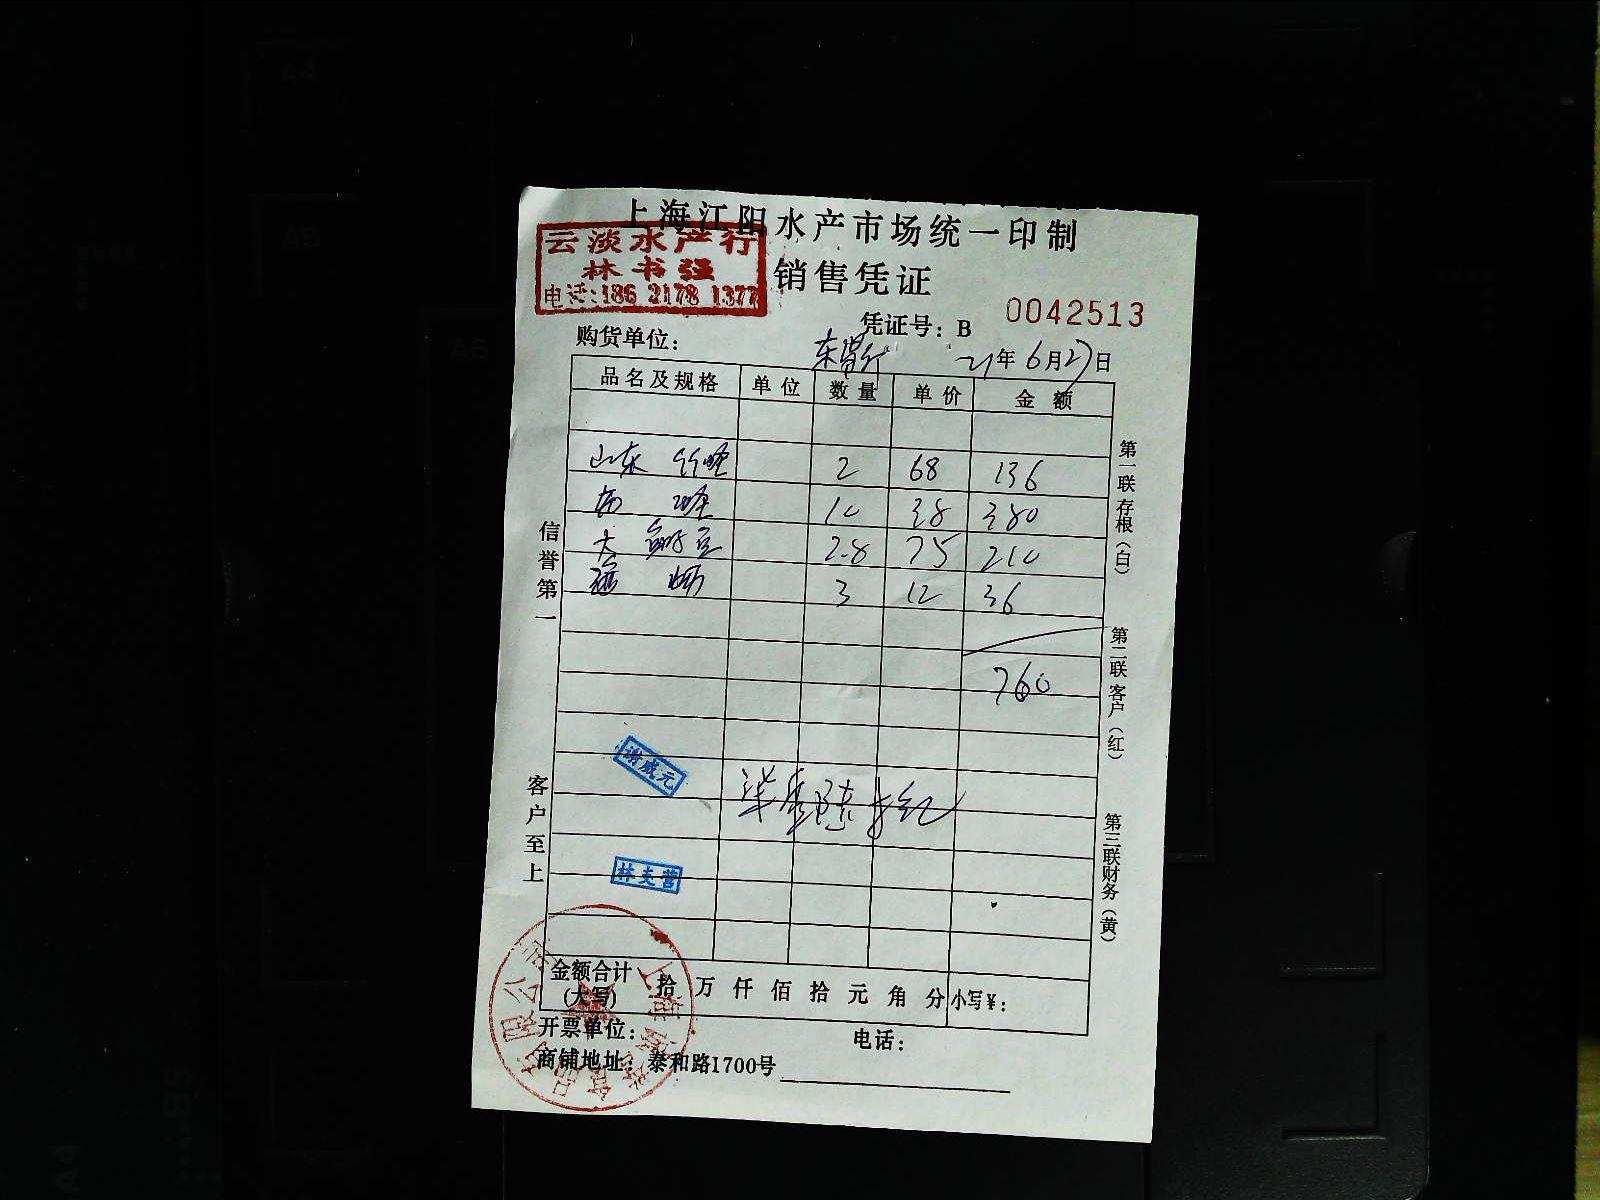 上海江阳水产市场统一印制
云淡水产行
林书强
电话:186 2178 1377
销售凭证
凭证号: B 0042513
购货单位:
21年6月27日
品名及规格 单位 数量 单价 金额
山东 2 68 136
10 38 380
大 2.8 75 210
3 12 36
760
谢成元
林支营
信誉第一
客户至上
第一联存根(白)
第二联客户(红)
第三联财务(黄)
金额合计(大写) 拾万仟佰拾元角分 小写¥:
开票单位: 电话:
商铺地址: 泰和路1700号